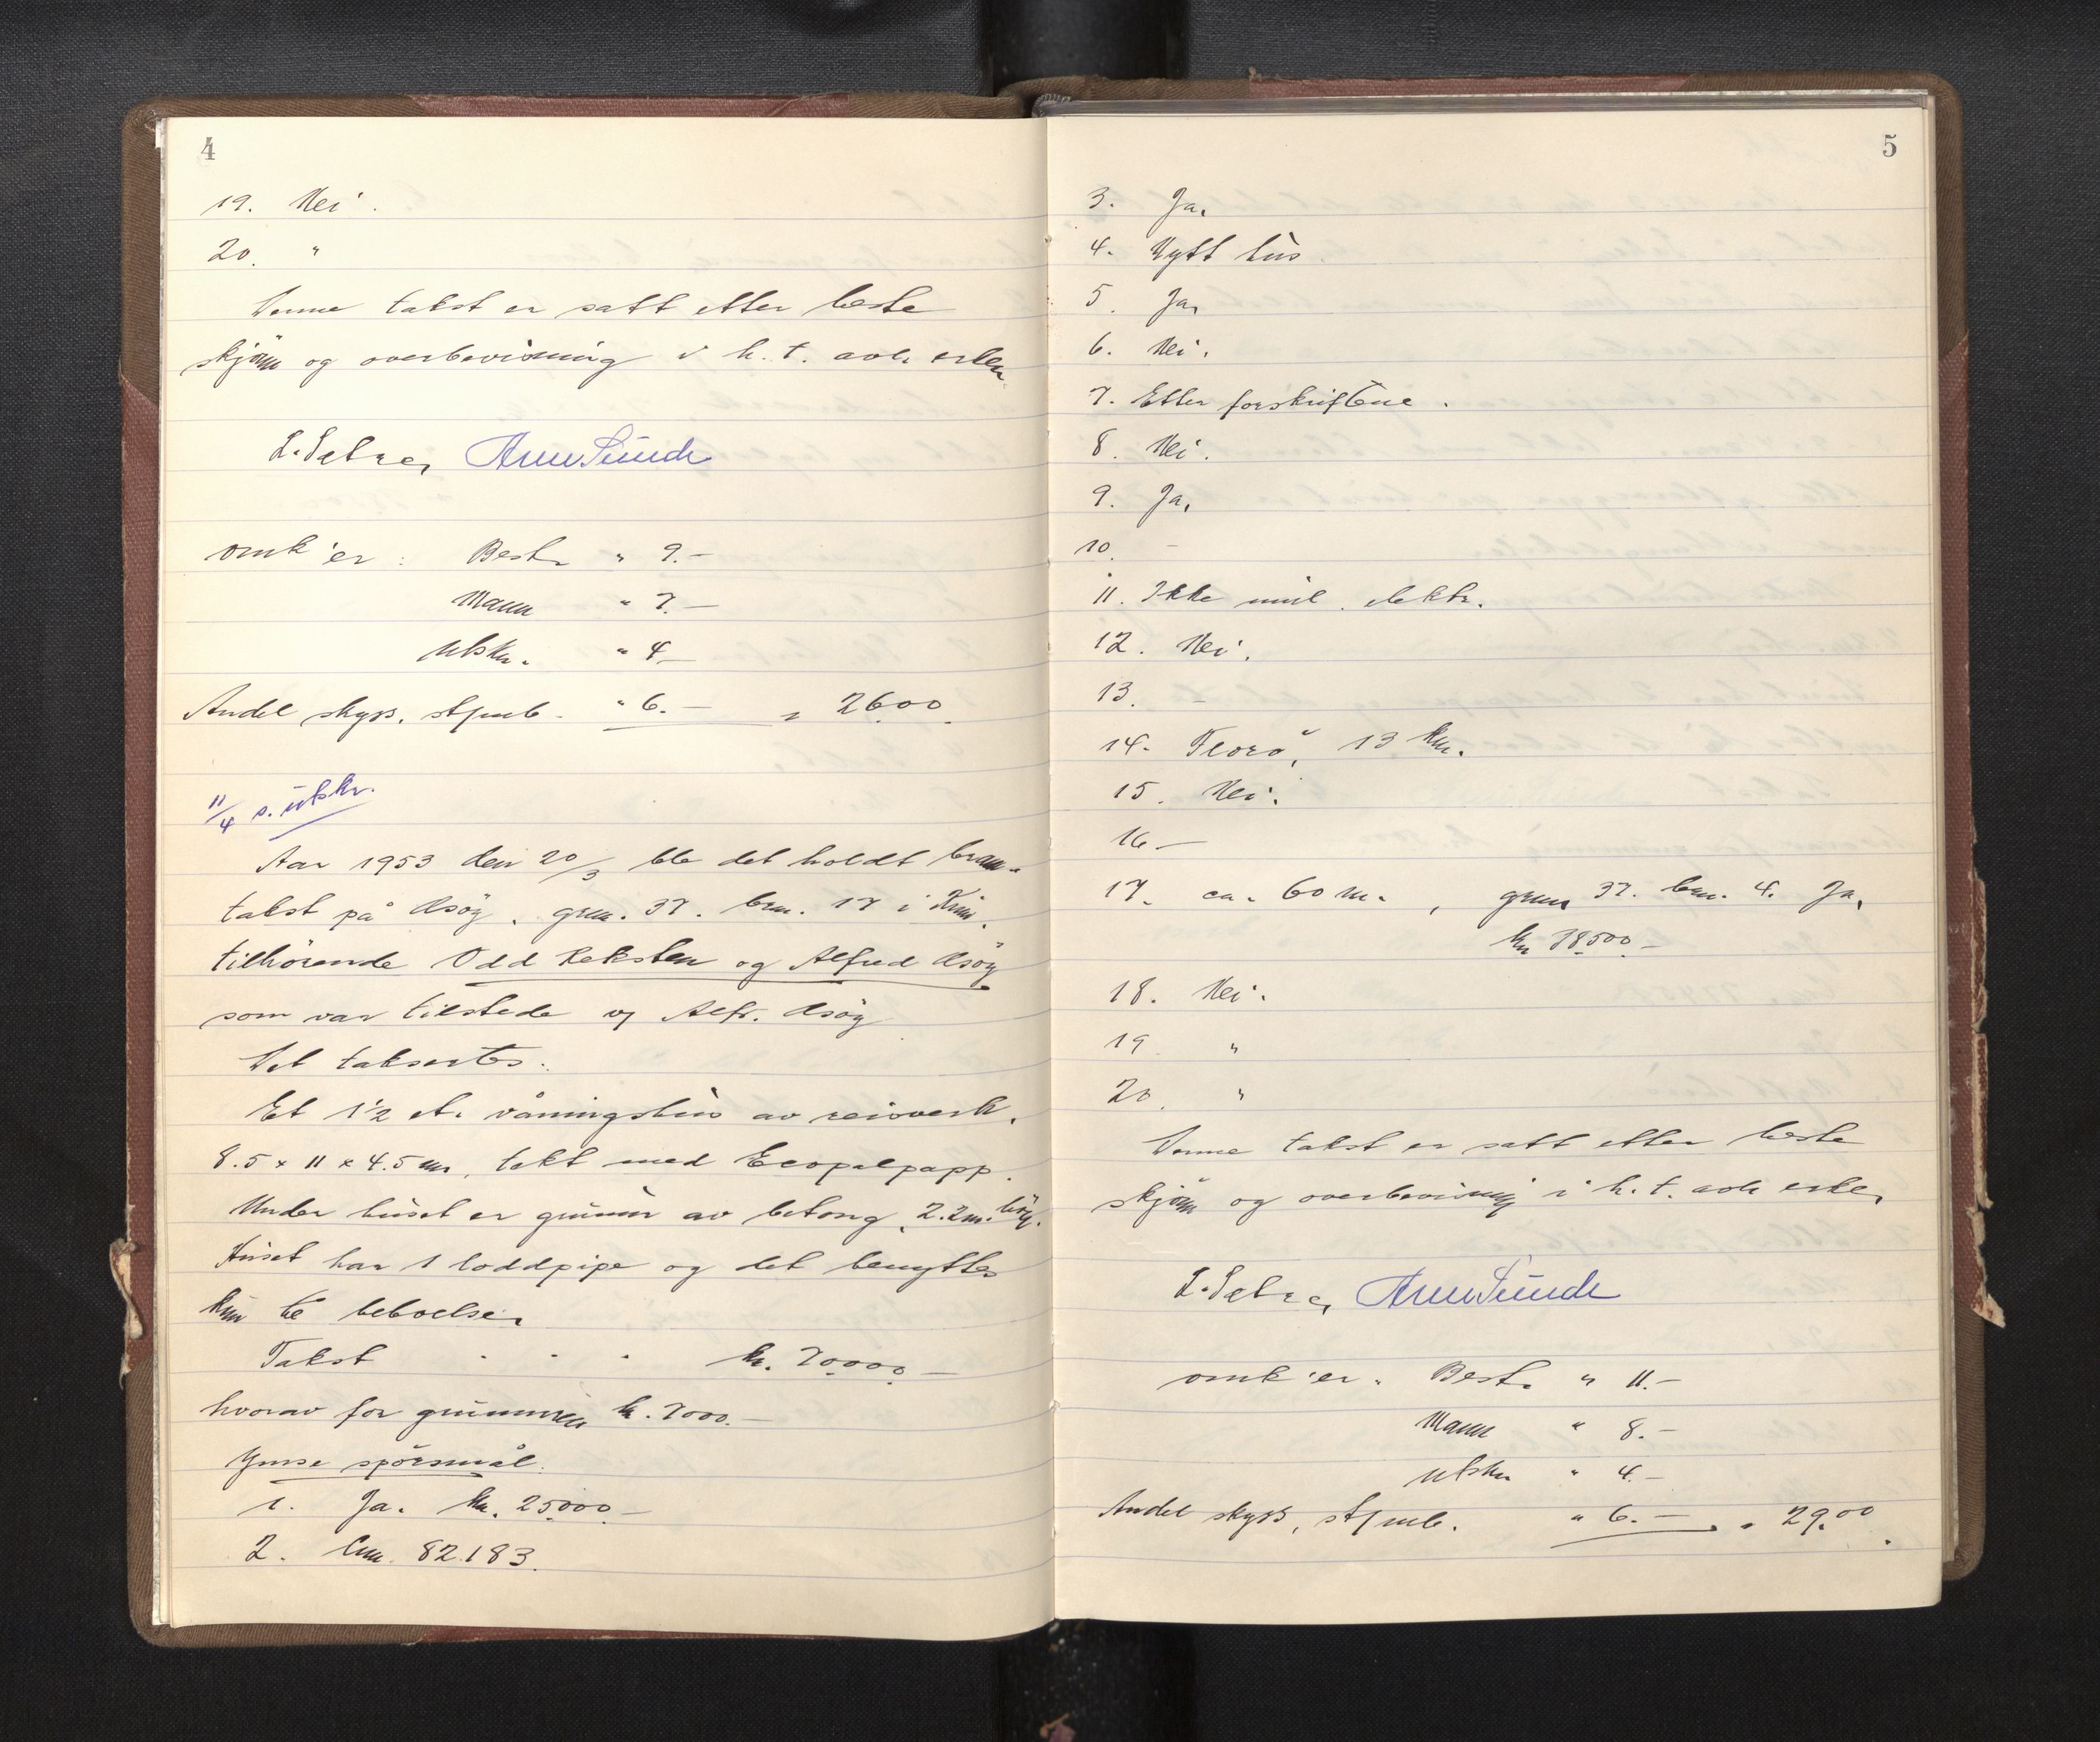 4
19. Nei.
20. "
Denne takst er satt etter beste
skjøn og overbevisning i h. t. avl. erkl.
L. Sætre, Arne Sunde
omk'er: Best. " 9.-
Mann " 7.-
Utskr. " 4-
Andel skyss, stjmb. " 6.- = 26.00.
11/4 s. utskr.
Aar 1953 den 20/3 ble det holdt brann-
takst på Åsöy. gnr. 37. brn. 17 i Kinn.
tilhörende Odd Reksten og Alfred Åsöy
som var tilstede v/ Alfr. Åsöy
Det taksertes.
Et 1½ et. våningshus av reisverk.
8.5 x 11 x 4.5 m, tekt med Ecopalpapp.
Under huset er grunnmur av betong, 2.2 m. höy.
Huset har 1 loddpipe og det benyttes
kun til beboelse.
Takst . . . kr. 70000.-
hvorav for grunnmuren kr. 7000.-
Ymse spörsmål.
1. Ja. kr. 25000.-
2. Lnr. 82183.
5
3. Ja.
4. Nytt hus.
5. Ja.
6. Nei.
7. Etter forskriftene.
8. Nei.
9. Ja.
10. -
11. Ikke inul. elektr.
12. Nei.
13. -
14. Florö, 13 km.
15. Nei.
16 -
17. ca. 60 m., gnr. 37. brn. 4. Ja.
kr. 38500.-
18. Nei.
19 "
20. "
Denne takst er satt etter beste
skjøn og overbevisning i h. t. avl. erkl.
L. Sætre, Arne Sunde
omk'er. Best. " 11.-
Mann " 8.-
utskr " 4.-
Andel skyss, stjmb. " 6.- = 29.00.